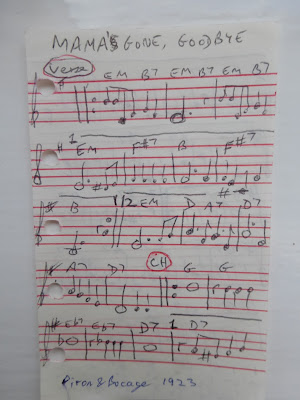 MAMA'S GONE, GOODBYE
Verse
EM B7 EM B7 EM B7
1 EM F#7 B F#7
B 1/2 EM D A7 D7
A7 D7 CH G G
Eb7 Eb7 D7 1 D7
Piron & Bocage 1923